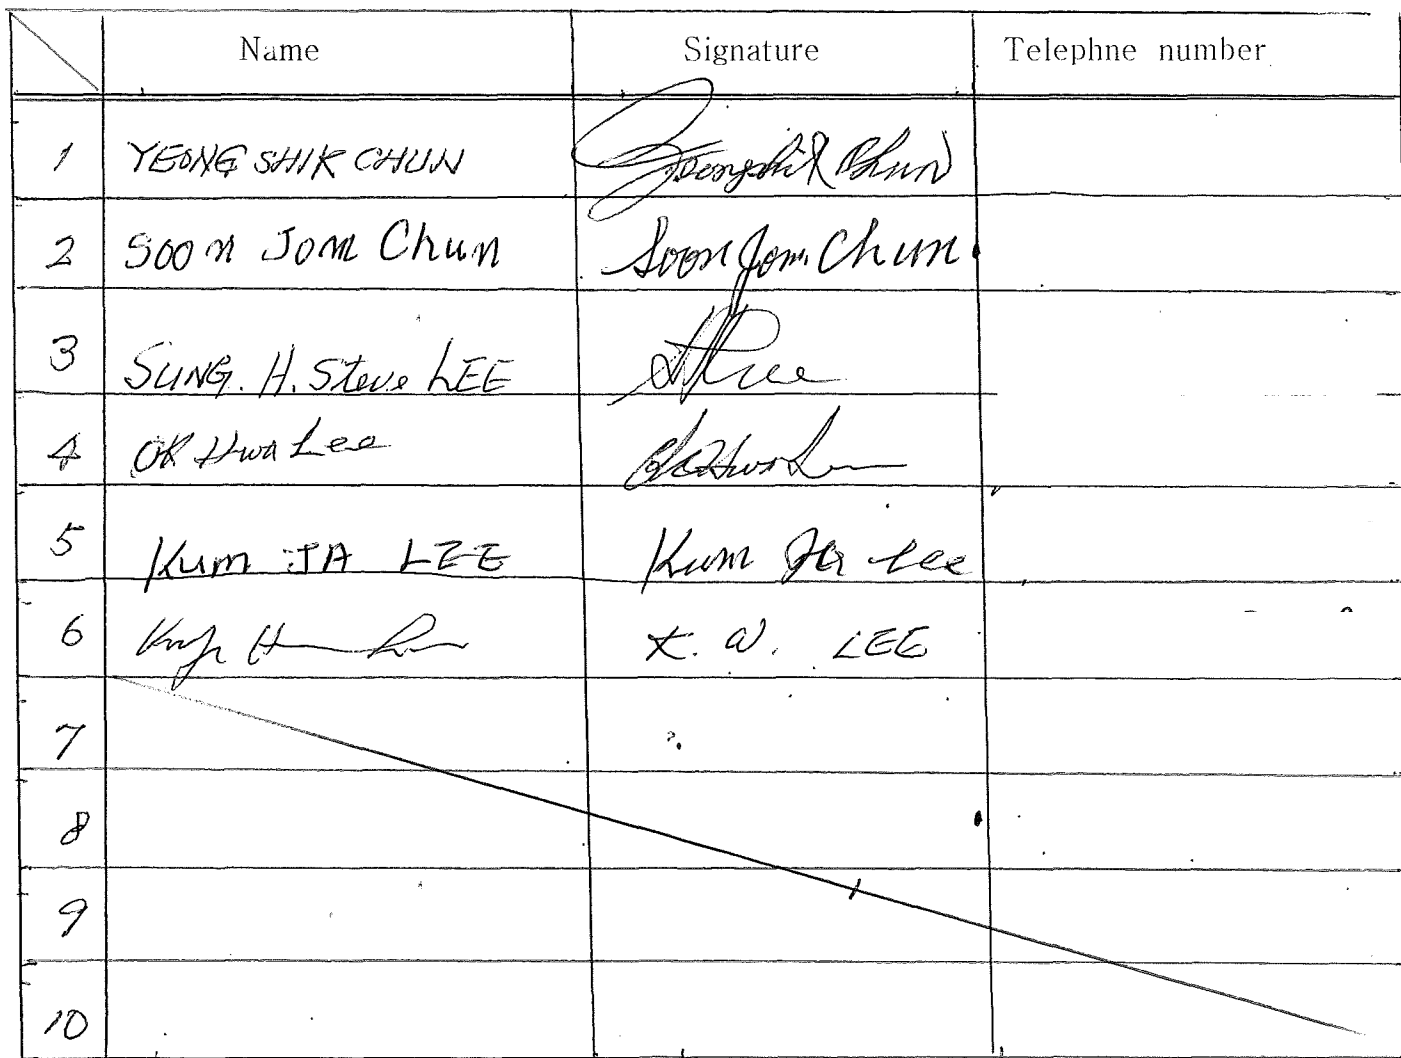 Name Signature Telephne number
1 YEONG SHIK CHUN Yeongshik Chun
2 Soon Jom Chun Soon Jom Chun
3 SUNG. H. Steve LEE
4 OK Hwa Lee Ok Hwa Lee
5 KUM JA LEE Kum Ja Lee
6 K. W. LEE
7
8
9
10